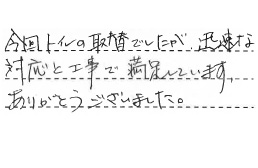 今回トイレの取替でしたが、迅速な
対応と工事で満足しています。
ありがとうございました。